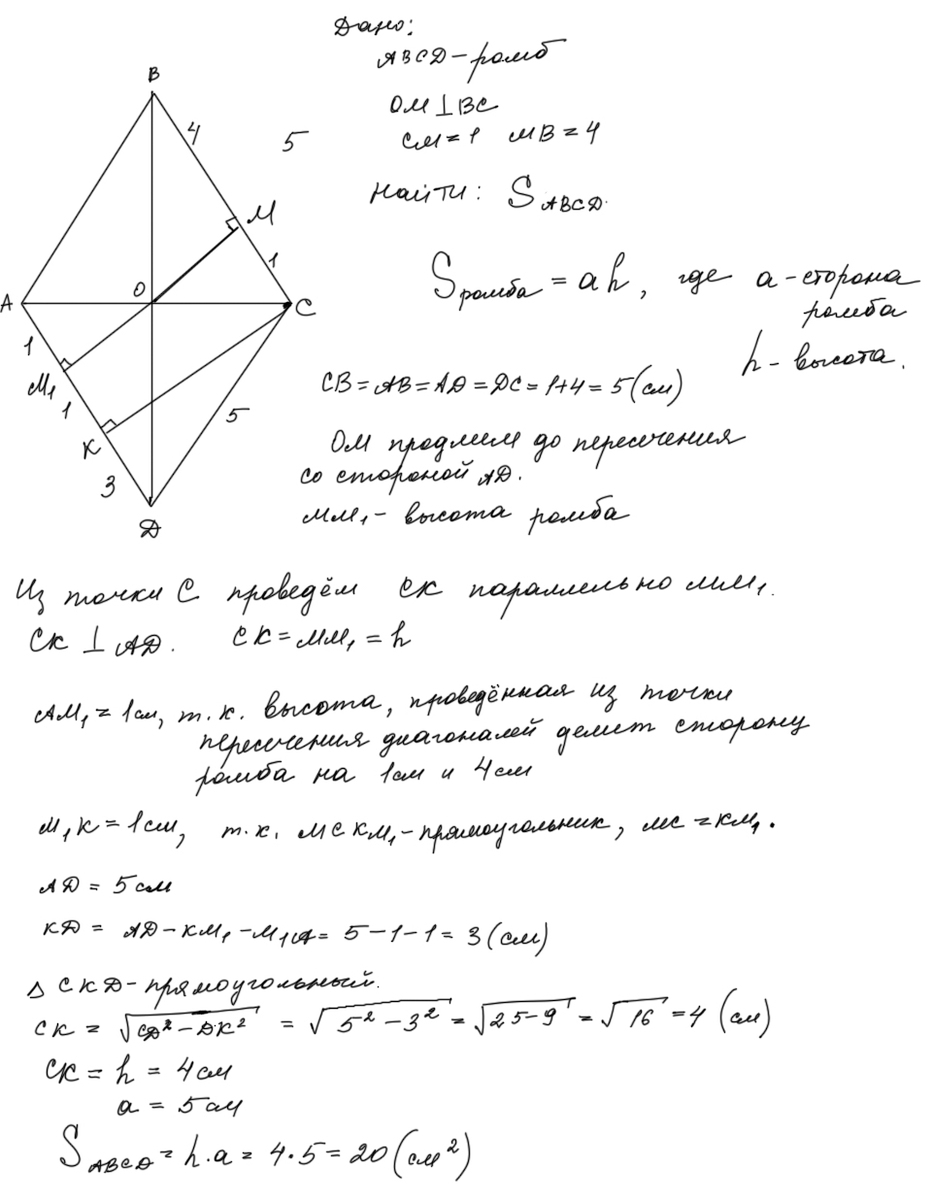 Дано:
ABCD - ромб
OM ⊥ BC
CM = 1 MB = 4
Найти: S ABCD.
B
4
5
M
1
O
A
C
1
M₁
1
K
5
3
D
S ромба = ah, где a - сторона
ромба
h - высота.
CB = AB = AD = DC = 1+4 = 5 (см)
OM продлим до пересечения
со стороной AD.
MM₁ - высота ромба
Из точки C проведём CK параллельно MM₁.
CK ⊥ AD. CK = MM₁ = h
AM₁ = 1см, т.к. высота, проведённая из точки
пересечения диагоналей делит сторону
ромба на 1см и 4см
M₁K = 1см, т.к. MCKM₁ - прямоугольник, MC = KM₁.
AD = 5см
KD = AD - KM₁ - M₁A = 5 - 1 - 1 = 3 (см)
Δ CKD - прямоугольный.
CK = √(CD² - DK²) = √(5² - 3²) = √(25-9) = √16 = 4 (см)
CK = h = 4см
a = 5см
S ABCD = h·a = 4·5 = 20 (см²)